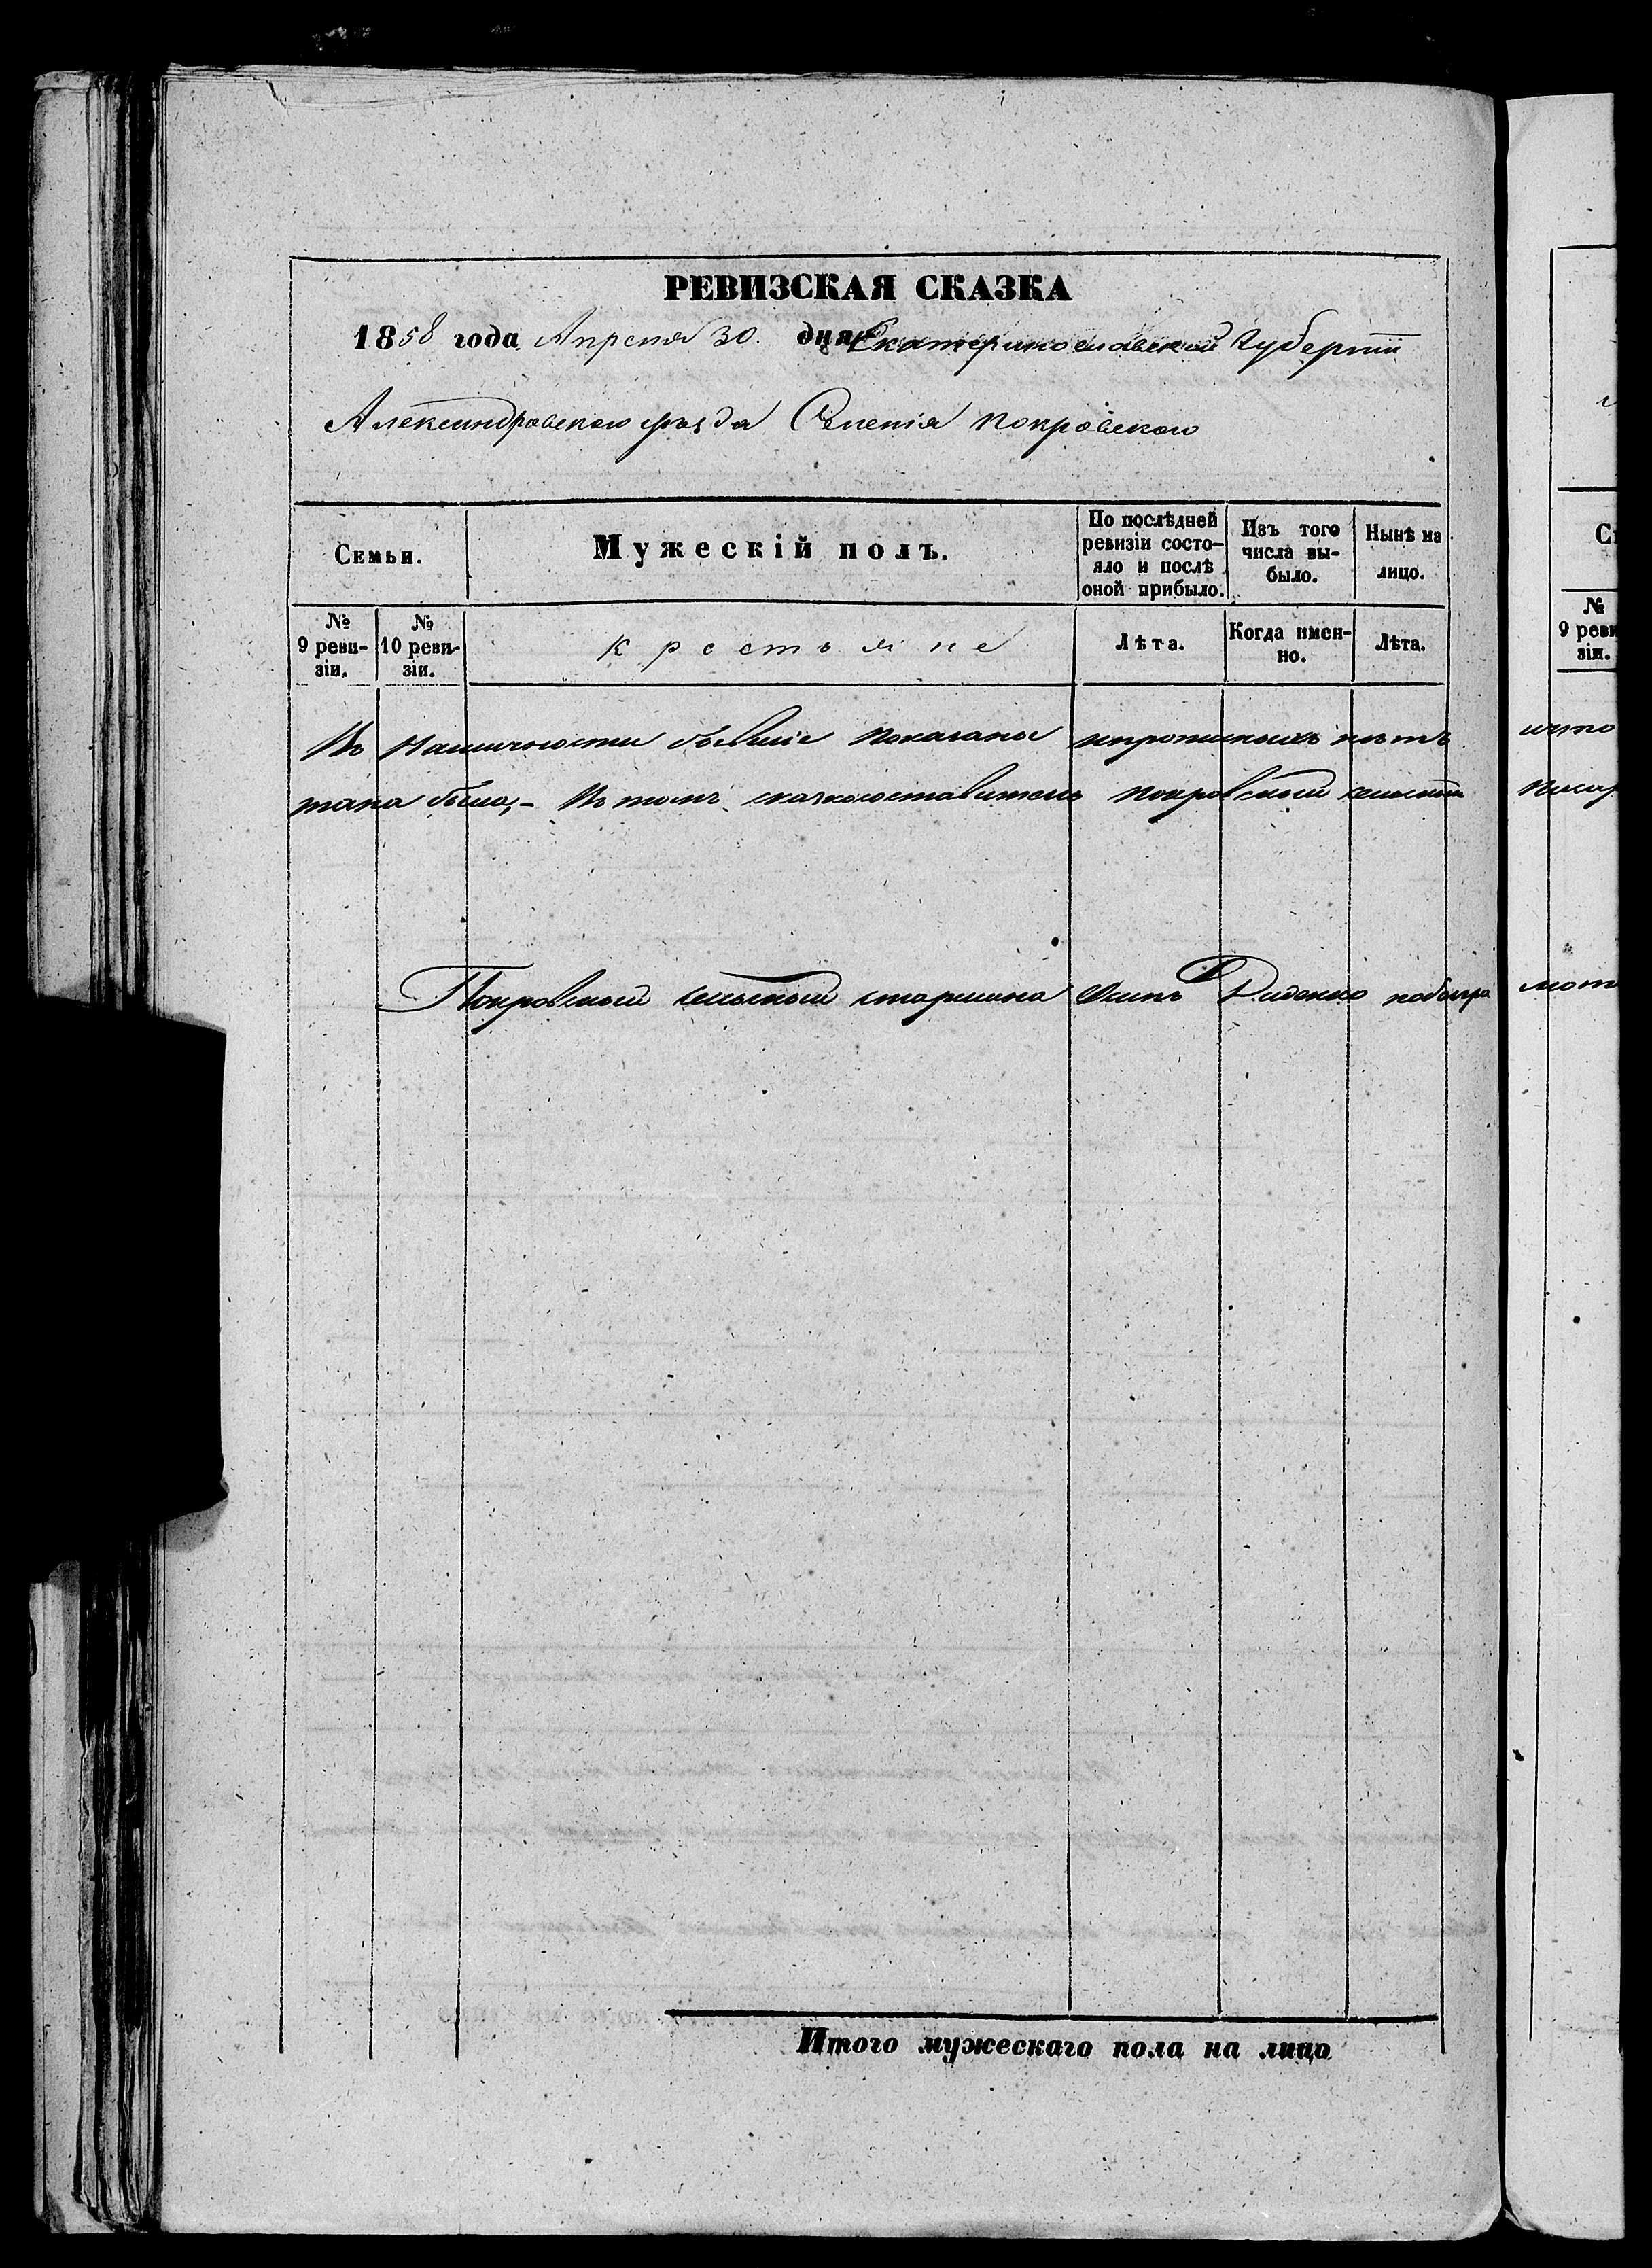 РЕВИЗСКАЯ СКАЗКА
1858 года Апреля 30. дня Екатеринославской Губерніи
Александровского уѣзда Сѣленія Покровского
Семьи.
Мужескій полъ.
По послѣдней ревизіи состо-
яло и послѣ
оной прибыло.
Изъ того
числа вы-
было.
Нынѣ на
лицо.
№
9 реви-
зіи.
№
10 реви-
зіи.
крестьяне
Лѣта.
Когда имен-
но.
Лѣта.
Въ Наличности бывшіе показаны ипрописныхъ нѣтъ
Въ томъ сказкосоставитель покровский
Покровский сельский старшина Осипъ Диденко
Итого мужескаго пола на лицо
№
9 реви
зіи.